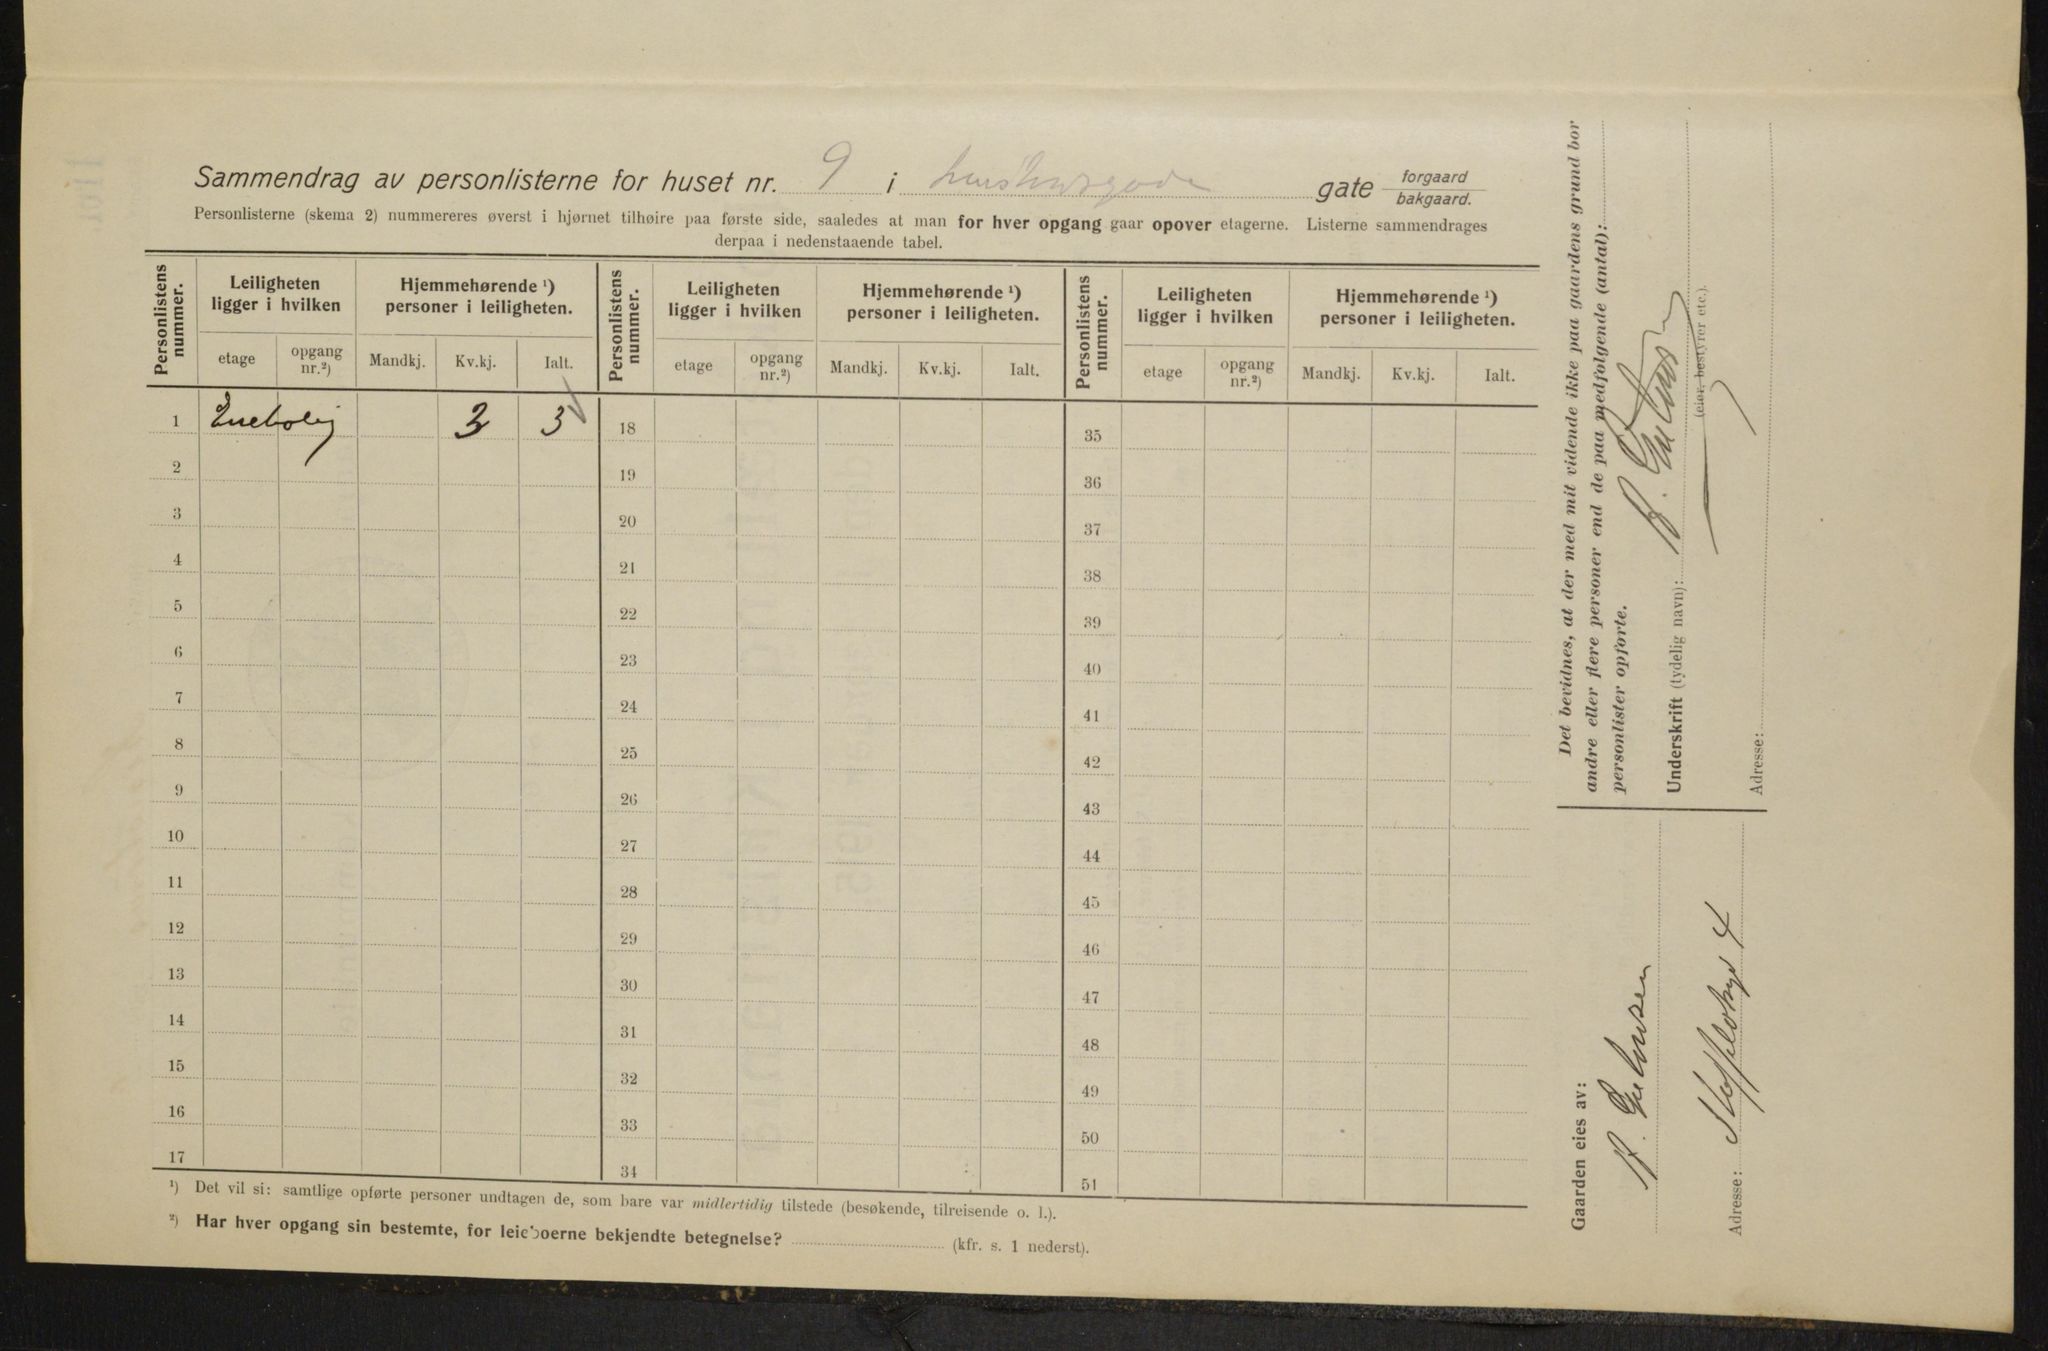 Sammendrag av personlisterne for huset nr. 9 i gate forgaard bakgaard.
Personlisterne (skema 2) nummereres øverst i hjørnet tilhøire paa første side, saaledes at man for hver opgang gaar opover etagerne. Listerne sammendrages
derpaa i nedenstaaende tabel.
Personlistens nummer. Leiligheten ligger i hvilken Hjemmehørende ¹) personer i leiligheten. Personlistens nummer. Leiligheten ligger i hvilken Hjemmehørende ¹) personer i leiligheten. Personlistens nummer. Leiligheten ligger i hvilken Hjemmehørende ¹) personer i leiligheten.
etage opgang nr.²) Mandkj. Kv.kj. Ialt. etage opgang nr.²) Mandkj. Kv.kj. Ialt. etage opgang nr.²) Mandkj. Kv.kj. Ialt.
1 Enebolig 3 3 18 35
2 19 36
3 20 37
4 21 38
5 22 39
6 23 40
7 24 41
8 25 42
9 26 43
10 27 44
11 28 45
12 29 46
13 30 47
14 31 48
15 32 49
16 33 50
17 34 51
¹) Det vil si: samtlige opførte personer undtagen de, som bare var midlertidig tilstede (besøkende, tilreisende o. l.).
²) Har hver opgang sin bestemte, for leieboerne bekjendte betegnelse? (kfr. s. 1 nederst).
Det bevidnes, at der med mit vidende ikke paa gaardens grund bor
andre eller flere personer end de paa medfolgende (antal):
personlister opforte.
Underskrift (tydelig navn):
(eier, bestyrer etc.).
Adresse:
Gaarden eies av:
Adresse: 4